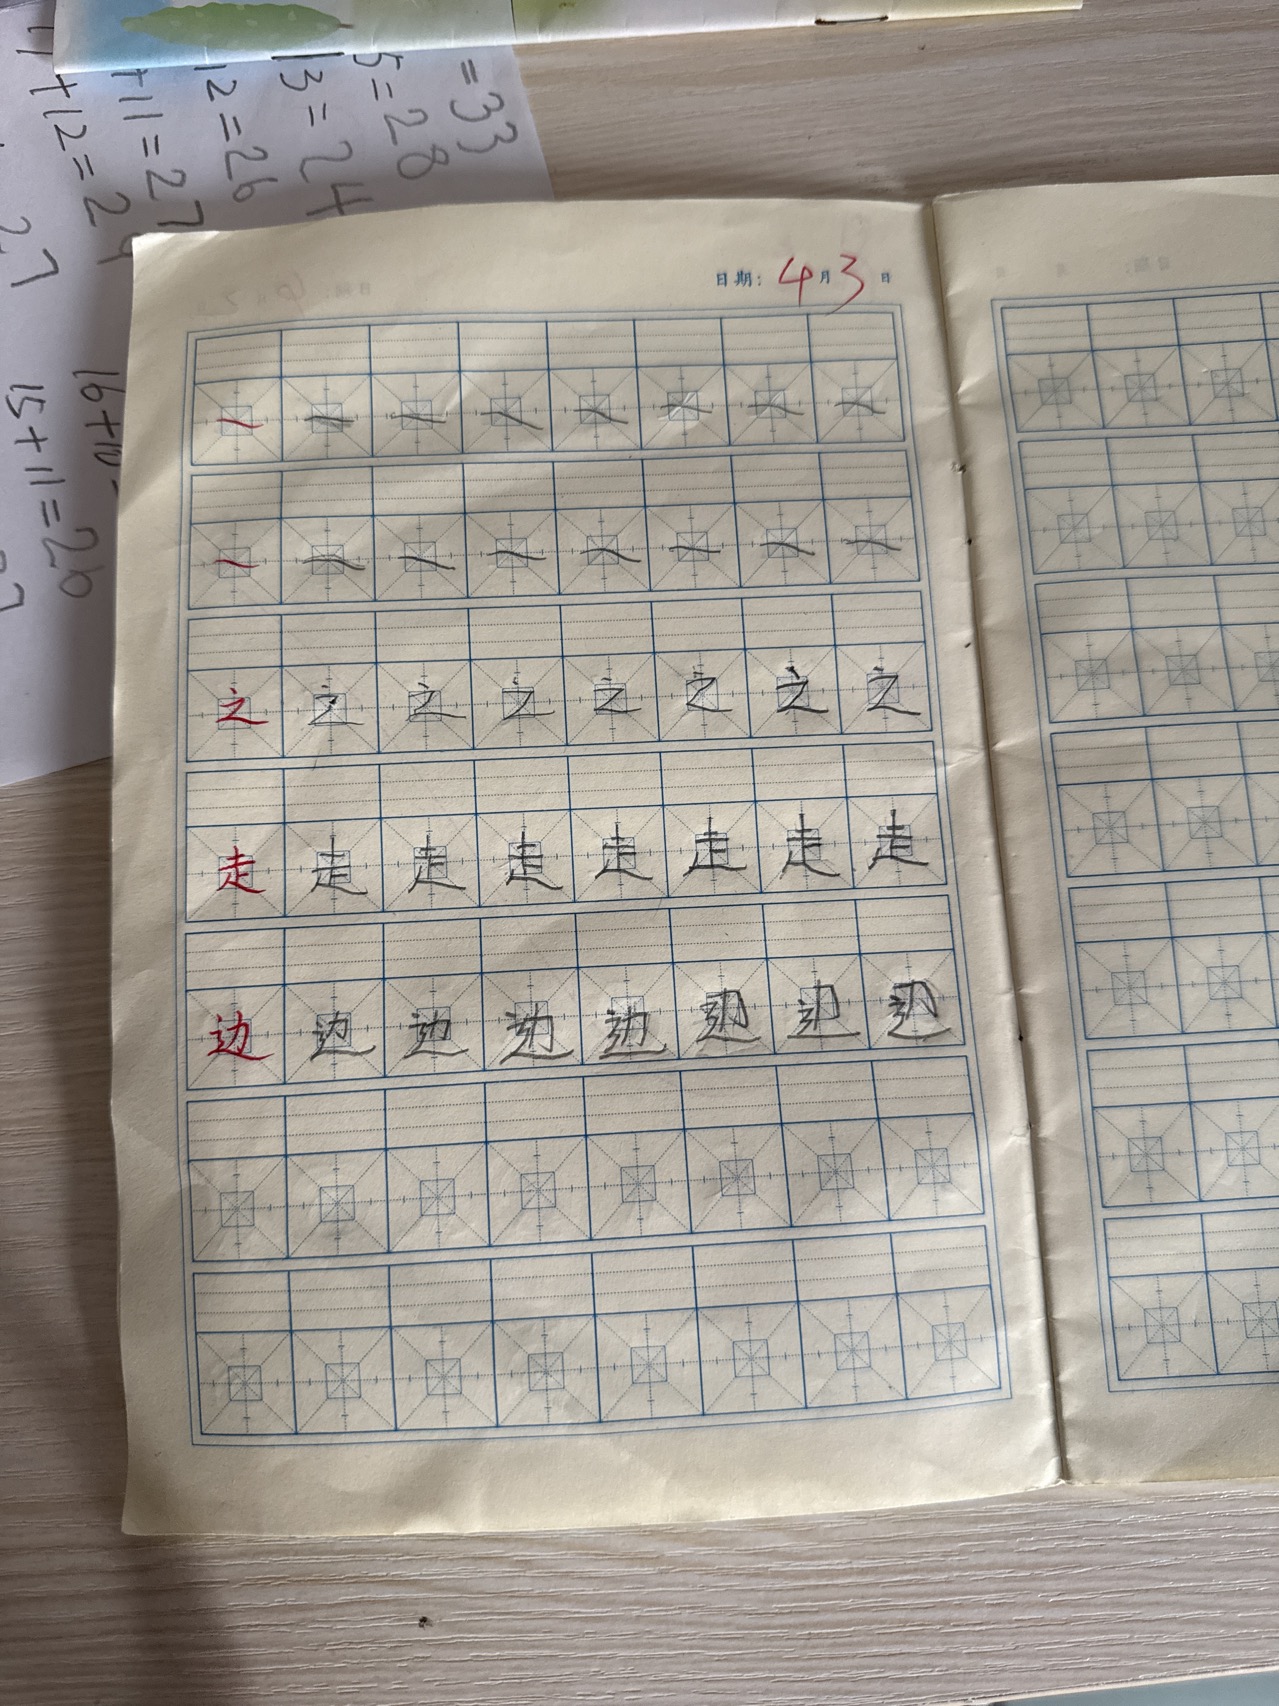 =33
5=28
13=24
12=26
+11=27
11+12=29
27
16+10=
15+11=26
日期：4月3日
之之之之之之之之
走走走走走走走走
边边边边边边边边